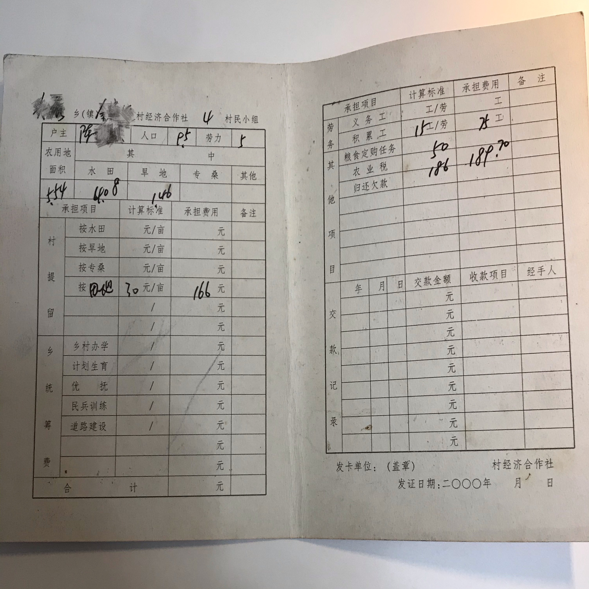 乡(镇 村经济合作社 4 村民小组
户主 陈 人口 劳力 5
农用地面积 其中
水田 旱地 专桑 其他
5.54 4.08 1.46
承担项目 计算标准 承担费用 备注
村提留
按水田 元/亩 元
按旱地 元/亩 元
按专桑 元/亩 元
按田地 30 元/亩 166 元
/ 元
/ 元
乡统筹费
乡村办学 / 元
计划生育 / 元
优抚 / 元
民兵训练 / 元
道路建设 / 元
元
元
合计 元
承担项目 计算标准 承担费用 备注
劳务
义务工 工/劳 工
积累工 15 工/劳 75 工
其他项目
粮食定购任务 50
农业税 186 189.70
归还欠款
交款记录
年 月 日 交款金额 收款项目 经手人
元
元
元
元
元
元
元
元
元
发卡单位:(盖章) 村经济合作社
发证日期:二〇〇〇年 月 日